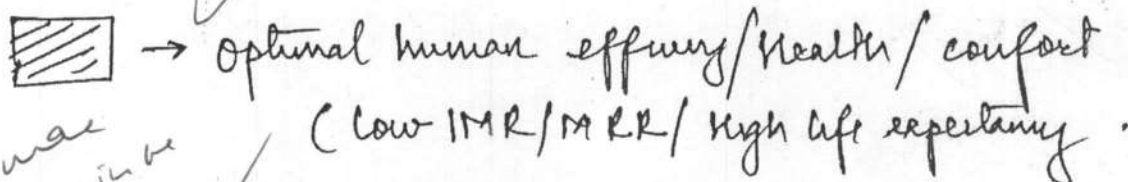 → optimal human efficiency/Health/comfort
(low IMR/MRR/High life expectancy.
in be